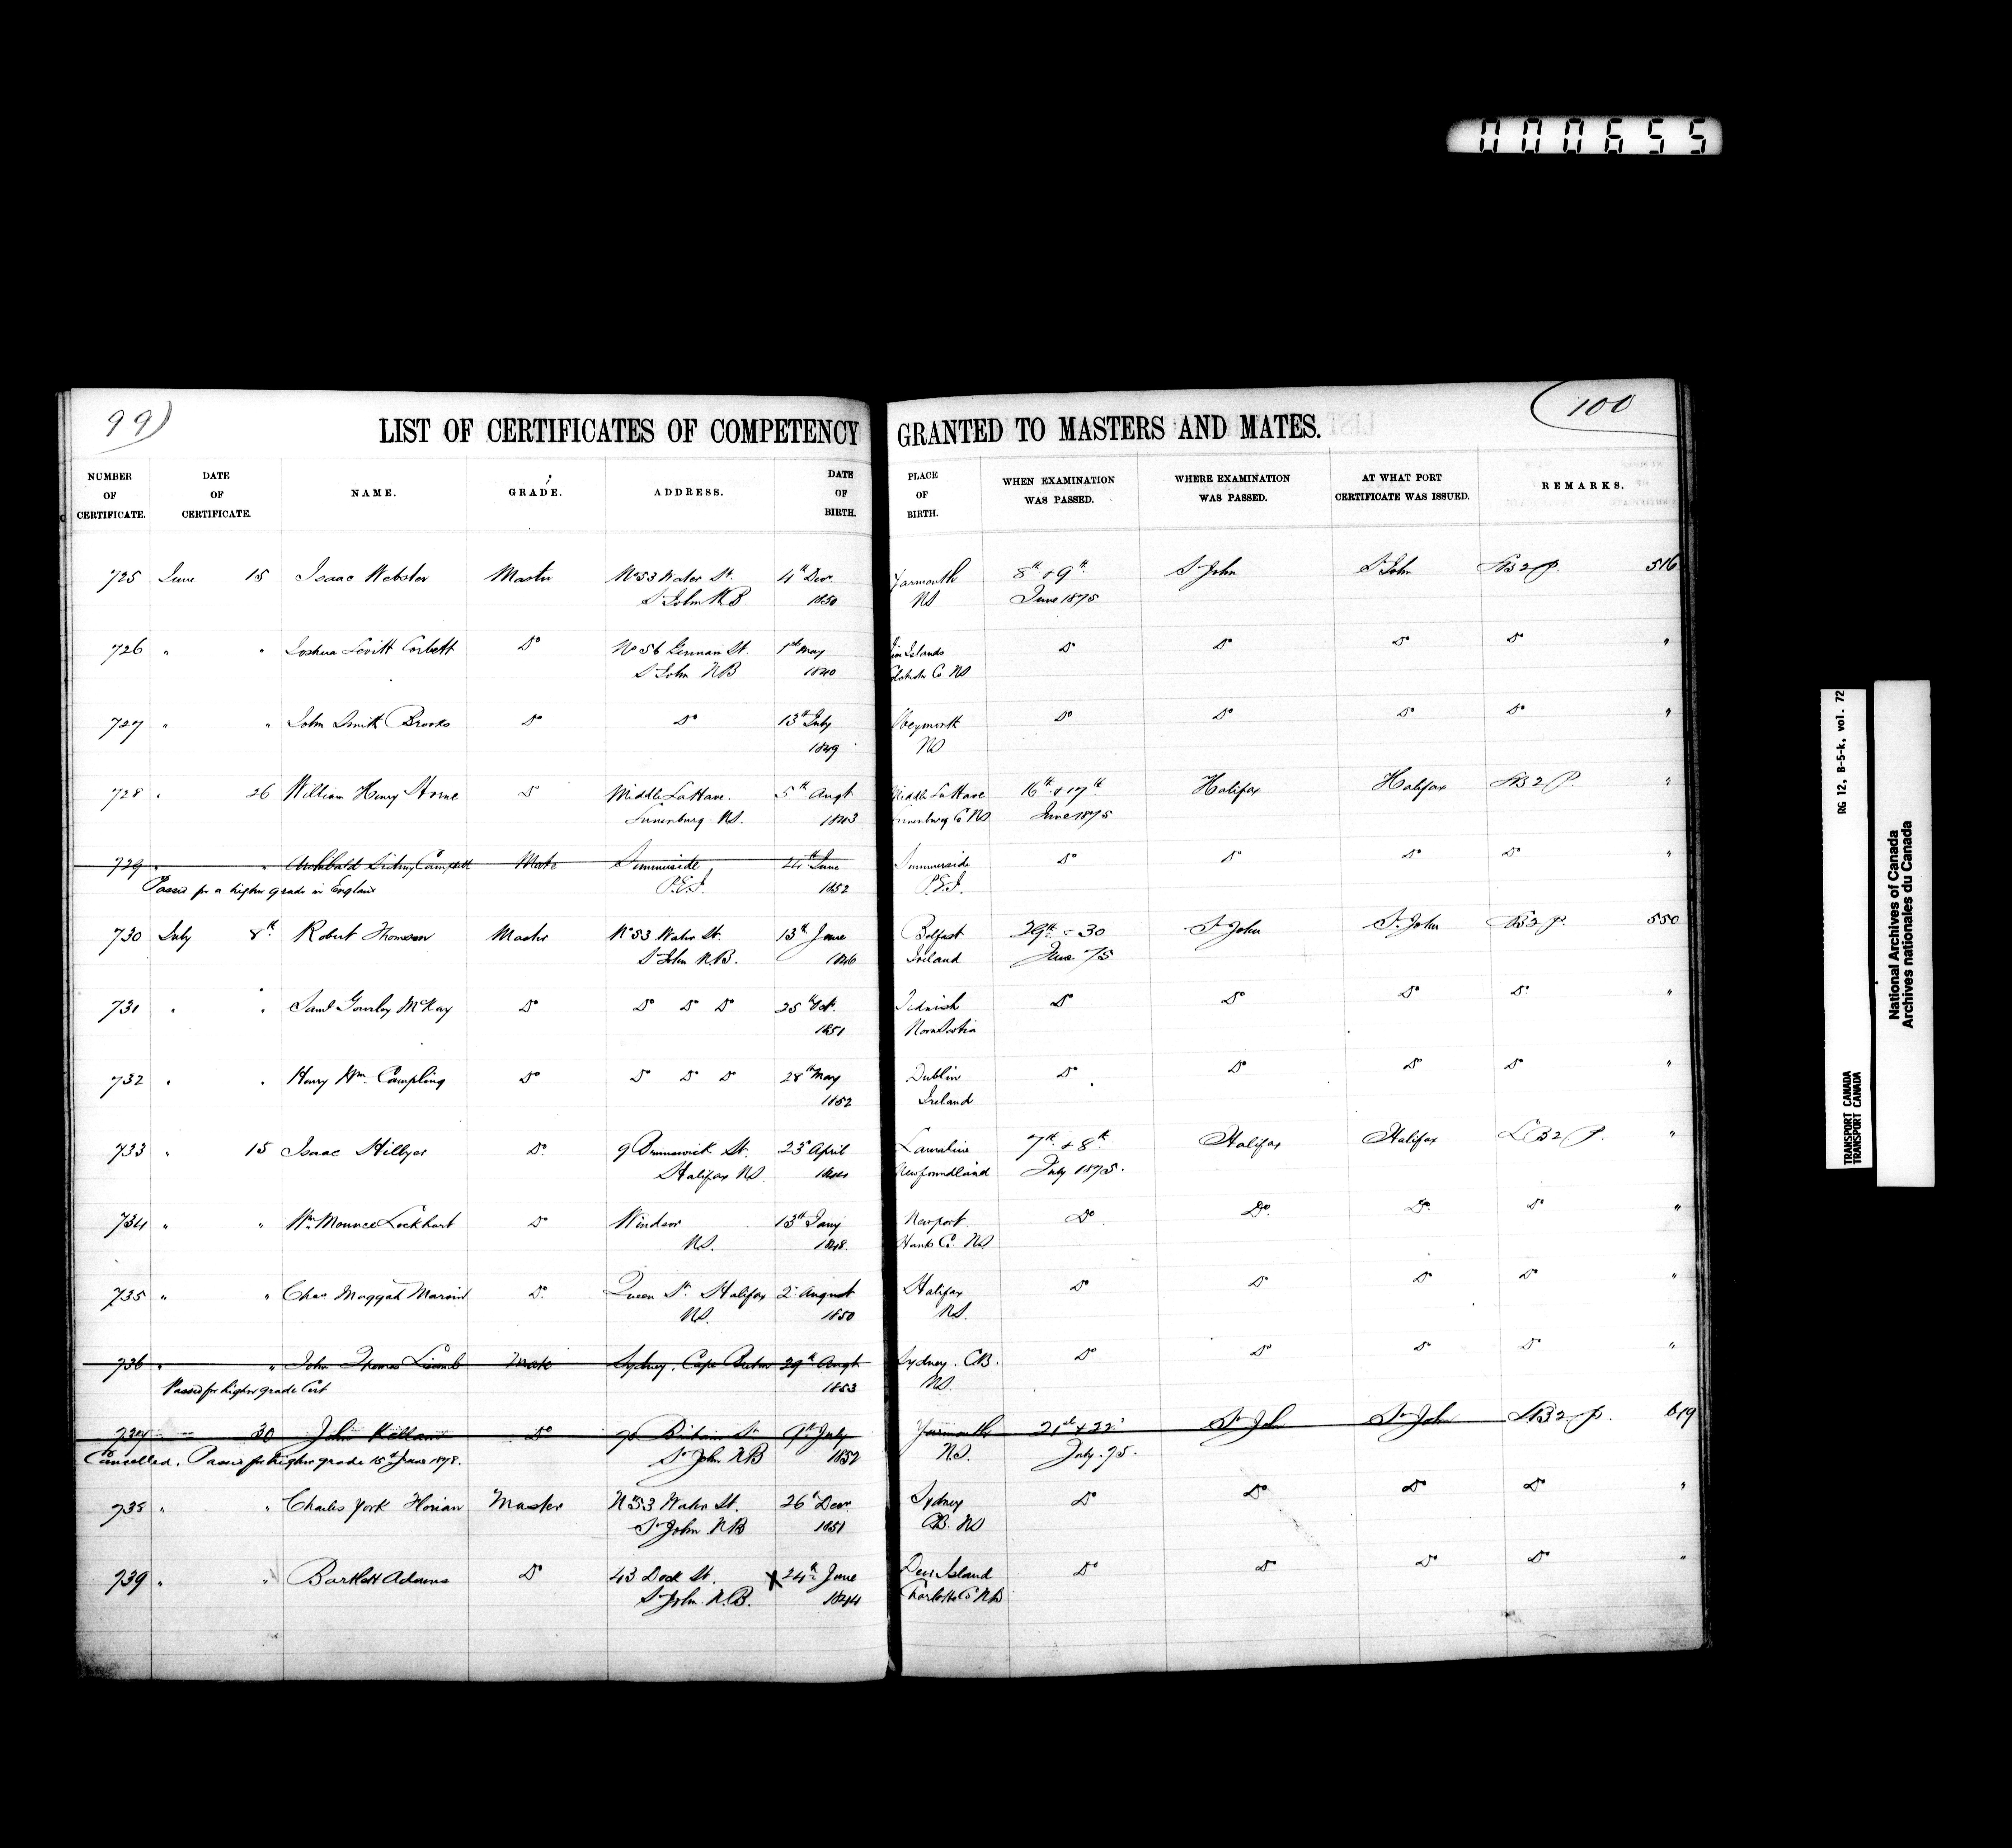 000655
99)
100
LIST OF CERTIFICATES OF COMPETENCY GRANTED TO MASTERS AND MATES.
NUMBER OF CERTIFICATE. DATE OF CERTIFICATE. NAME. GRADE. ADDRESS. DATE OF BIRTH. PLACE OF BIRTH. WHEN EXAMINATION WAS PASSED. WHERE EXAMINATION WAS PASSED. AT WHAT PORT CERTIFICATE WAS ISSUED. REMARKS.
725 June 15 Isaac Webster Master No 53 Water St. 4th Decr. Yarmouth 8th & 9th St John St John 516
St John N.B. 1850 NS June 1875
726 " " Joshua Levitt Corbett Do No 56 German St. 1st May Islands Do Do Do Do "
St John NB 1840 Co. NS
727 " " John Smith Brooks Do Do 13th July Do Do Do Do "
1849 NS
728 " 26 William Henry Do Middle LaHave. 5th Augt Middle LaHave 16th & 17th Halifax Halifax "
Lunenburg NS. 1843 Lunenburg Co NS June 1875
729 " " Archibald Sidney Campbell Mate Summerside June Summerside Do Do Do Do "
Passed for a higher grade in England P.E.I. 1852 P.E.I.
730 July 8th Robert Thomson Master No 53 Water St. 13th June Belfast 29th & 30 St John St. John 550
St John N.B. 1846 Ireland June 75
731 " " Saml Gourley McKay Do Do Do Do 25th Oct. Tidnish Do Do Do Do "
1851 Nova Scotia
732 " " Henry Wm. Campling Do Do Do Do 28th May Dublin Do Do Do Do "
1852 Ireland
733 " 15 Isaac Hillyer Do. 9 Brunswick St. April Lamaline 7th & 8th Halifax Halifax "
Halifax NS. 1844 Newfoundland July 1875.
734 " " Wm. Mounce Lockhart Do Windsor 13th Jany Newport Do Do. Do. Do "
NS. 1848. Hants Co. NS
735 " " Chas Maggah Do. Queen St. Halifax 2d August Halifax Do Do Do Do "
NS. 1850 NS.
736 " " John Thomas Mate Sydney, Cape Breton 29th Augt Sydney. C.B. Do Do Do Do "
Passed for higher grade Cert 1853 NS.
737 30 John Killam Do Britain St 9th July Yarmouth 21st & 22d St John St John 619
Cancelled. Passed for higher grade 15th June 1878. St John NB 1852 N.S. July. 75.
738 " " Charles York Master No 53 Water St. 26th Decr Sydney Do Do Do Do "
St John NB 1851 CB. NS
739 " " Bartlett Adams Do 43 Dock St. X 24th June Deer Island Do Do Do Do "
St John. N.B. 1844 Charlotte Co NB
RG 12, B-5-k, vol. 72
TRANSPORT CANADA
TRANSPORT CANADA
National Archives of Canada
Archives nationales du Canada